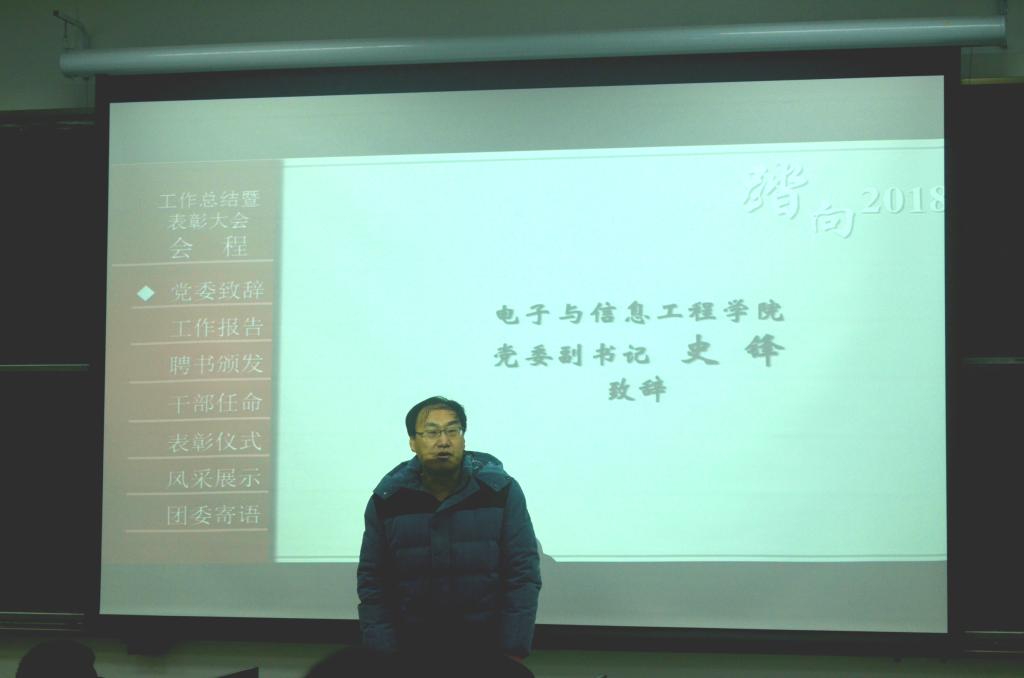 工作总结暨
表彰大会
会 程
党委致辞
工作报告
聘书颁发
干部任命
表彰仪式
风采展示
团委寄语
踏向2018
电子与信息工程学院
党委副书记 史 锋
致辞